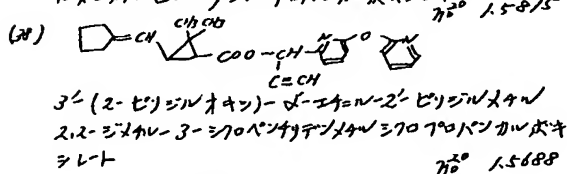 n20D 1.5815
(38)
CH3 CH3
=CH
COO-CH-
N
O
N
C≡CH
3'-(2-ピリジルオキシ)-α-エチニル-2'-ピリジルメチル
2,2-ジメチル-3-シクロペンチリデンメチルシクロプロパンカルボキ
シレート
n20D 1.5688